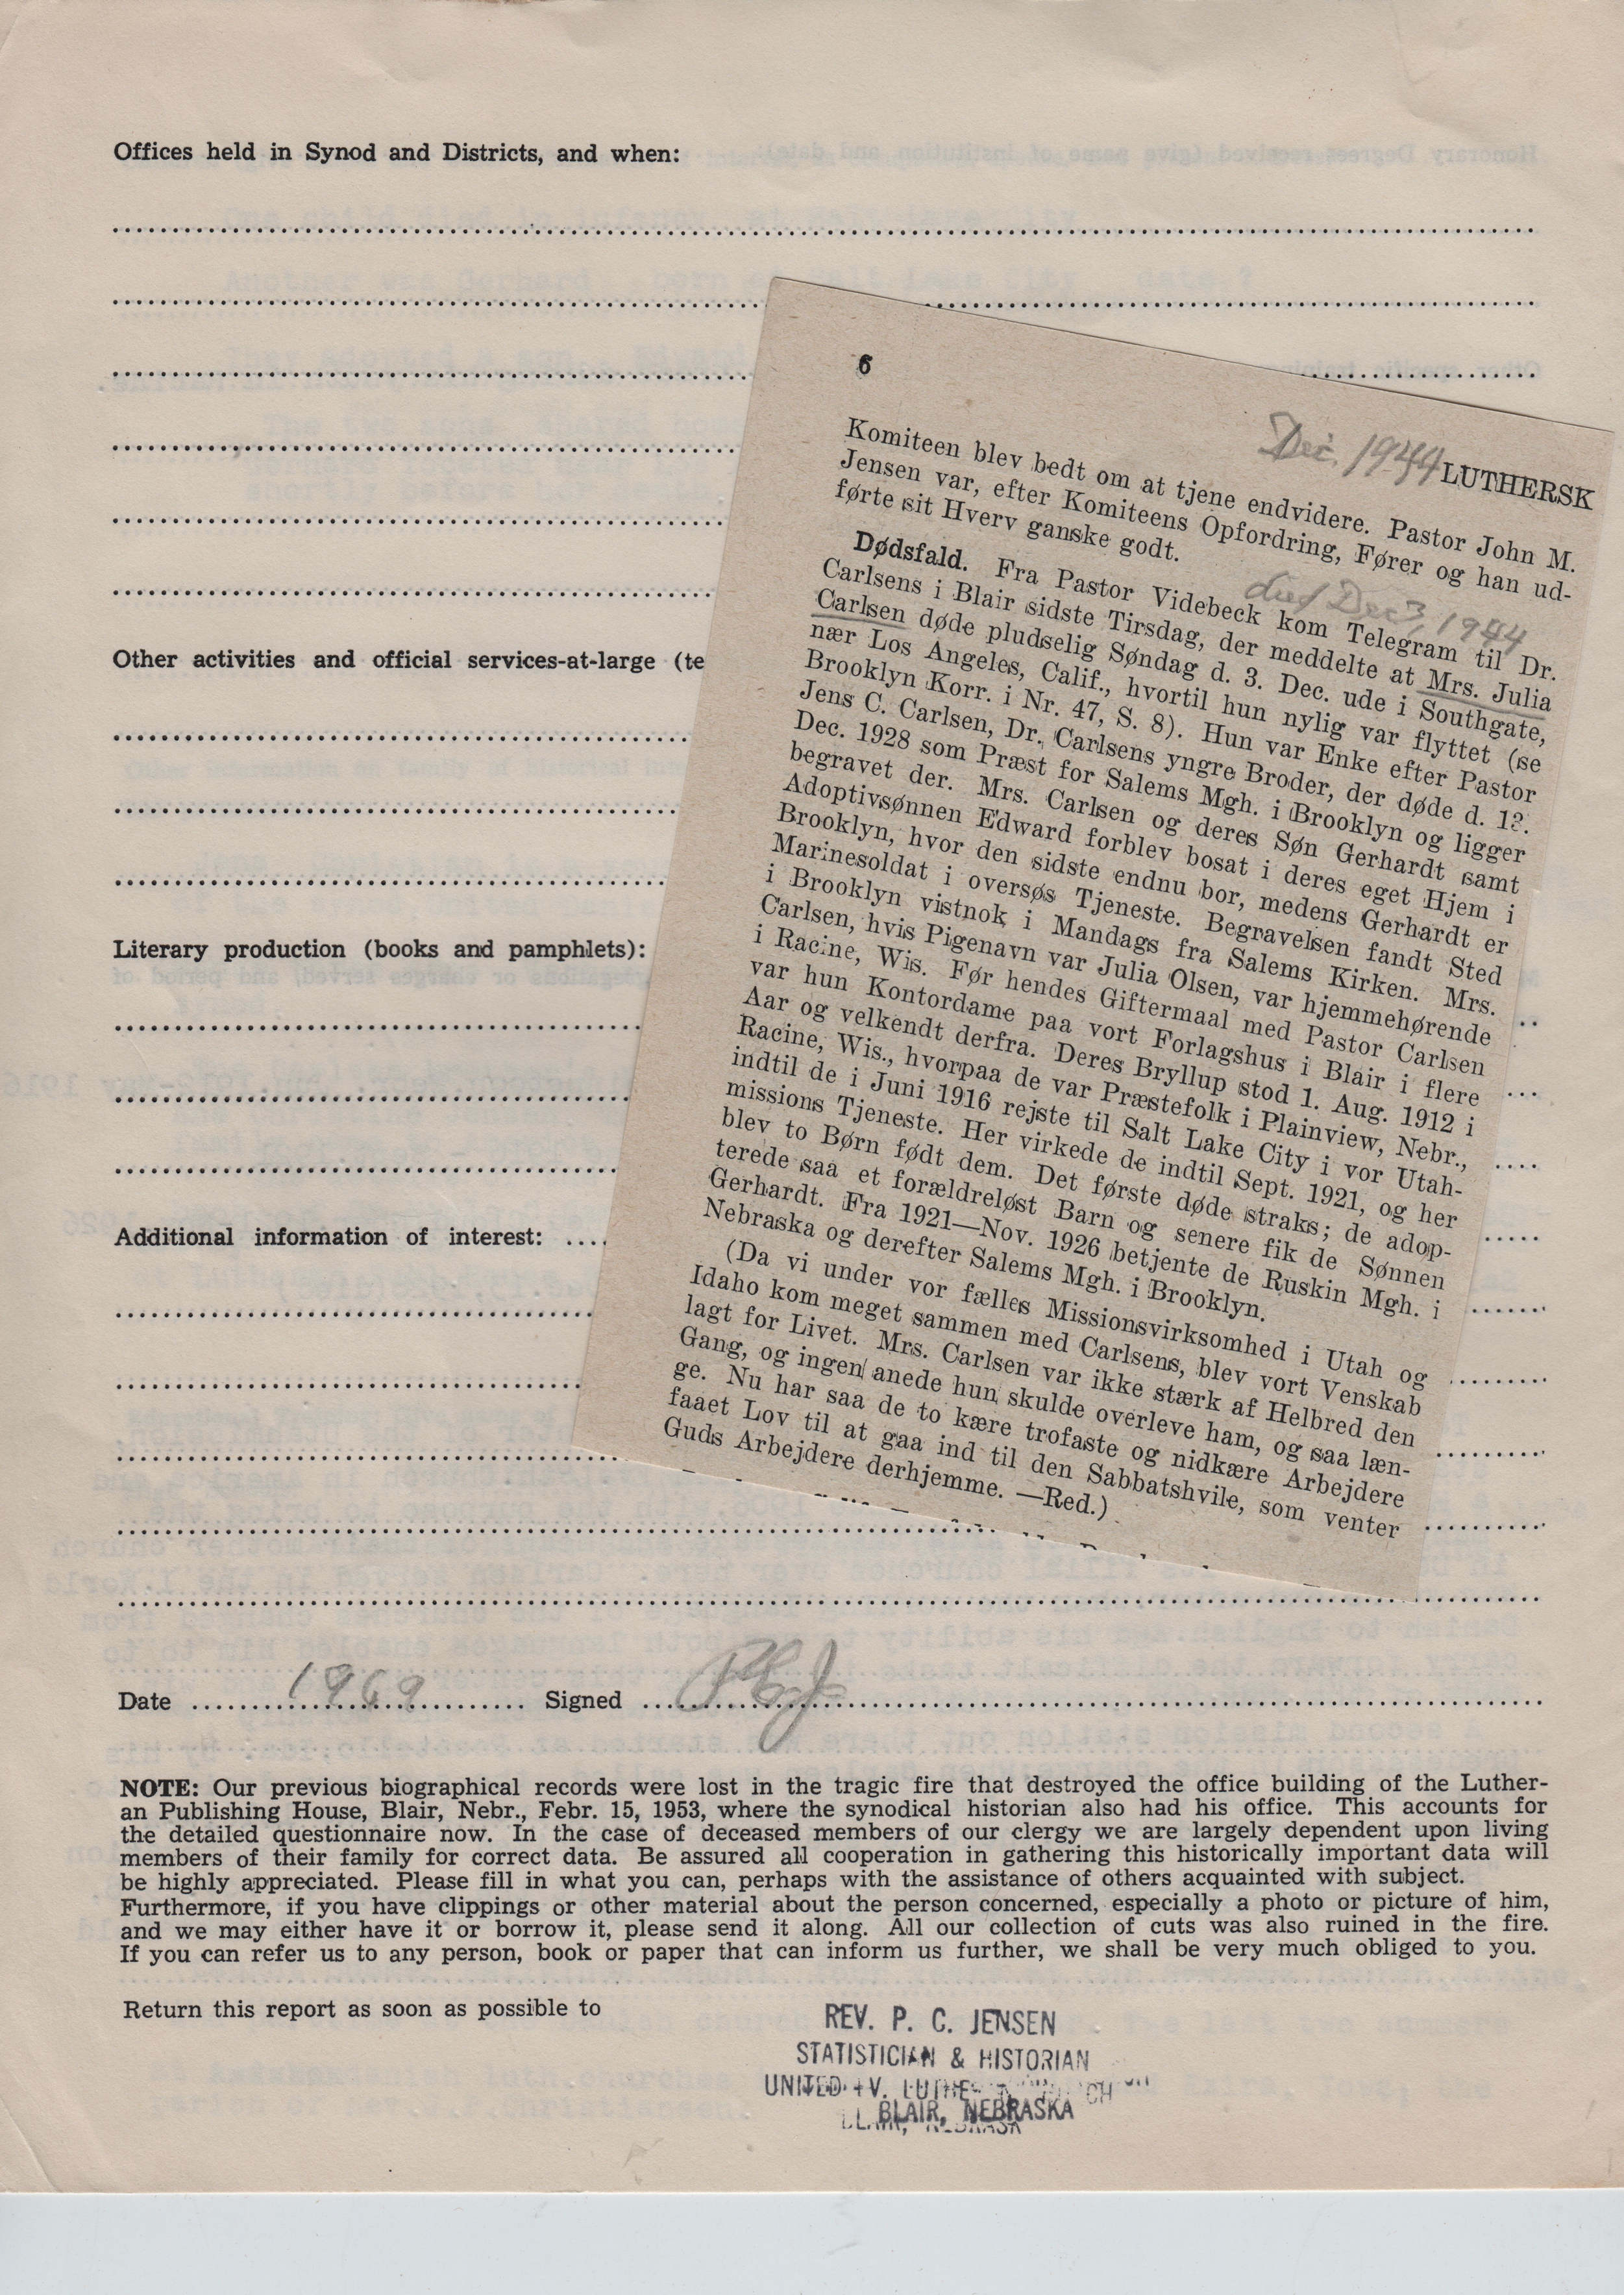 Offices held in Synod and Districts, and when:
6
Dec. 1944 LUTHERSK
Komiteen blev bedt om at tjene endvidere. Pastor John M.
Jensen var, efter Komiteens Opfordring, Fører og han ud-
førte sit Hverv ganske godt.
died Dec 3, 1944
Dødsfald. Fra Pastor Videbeck kom Telegram til Dr.
Carlsens i Blair sidste Tirsdag, der meddelte at Mrs. Julia
Carlsen døde pludselig Søndag d. 3. Dec. ude i Southgate,
nær Los Angeles, Calif., hvortil hun nylig var flyttet (se
Brooklyn Korr. i Nr. 47, S. 8). Hun var Enke efter Pastor
Jens C. Carlsen, Dr. Carlsens yngre Broder, der døde d. 13.
Dec. 1928 som Præst for Salems Mgh. i Brooklyn og ligger
begravet der. Mrs. Carlsen og deres Søn Gerhardt samt
Adoptivsønnen Edward forblev bosat i deres eget Hjem i
Brooklyn, hvor den sidste endnu bor, medens Gerhardt er
Marinesoldat i oversøs Tjeneste. Begravelsen fandt Sted
i Brooklyn vistnok i Mandags fra Salems Kirken. Mrs.
Carlsen, hvis Pigenavn var Julia Olsen, var hjemmehørende
i Racine, Wis. Før hendes Giftermaal med Pastor Carlsen
var hun Kontordame paa vort Forlagshus i Blair i flere
Aar og velkendt derfra. Deres Bryllup stod 1. Aug. 1912 i
Racine, Wis., hvorpaa de var Præstefolk i Plainview, Nebr.,
indtil de i Juni 1916 rejste til Salt Lake City i vor Utah-
missions Tjeneste. Her virkede de indtil Sept. 1921, og her
blev to Børn født dem. Det første døde straks; de adop-
terede saa et forældreløst Barn og senere fik de Sønnen
Gerhardt. Fra 1921—Nov. 1926 betjente de Ruskin Mgh. i
Nebraska og derefter Salems Mgh. i Brooklyn.
(Da vi under vor fælles Missionsvirksomhed i Utah og
Idaho kom meget sammen med Carlsens, blev vort Venskab
lagt for Livet. Mrs. Carlsen var ikke stærk af Helbred den
Gang, og ingen anede hun skulde overleve ham, og saa læn-
ge. Nu har saa de to kære trofaste og nidkære Arbejdere
faaet Lov til at gaa ind til den Sabbatshvile, som venter
Guds Arbejdere derhjemme. —Red.)
Other activities and official services-at-large (te
Literary production (books and pamphlets):
Additional information of interest:
Date 1969 Signed PCJ
NOTE: Our previous biographical records were lost in the tragic fire that destroyed the office building of the Luther-
an Publishing House, Blair, Nebr., Febr. 15, 1953, where the synodical historian also had his office. This accounts for
the detailed questionnaire now. In the case of deceased members of our clergy we are largely dependent upon living
members of their family for correct data. Be assured all cooperation in gathering this historically important data will
be highly appreciated. Please fill in what you can, perhaps with the assistance of others acquainted with subject.
Furthermore, if you have clippings or other material about the person concerned, especially a photo or picture of him,
and we may either have it or borrow it, please send it along. All our collection of cuts was also ruined in the fire.
If you can refer us to any person, book or paper that can inform us further, we shall be very much obliged to you.
Return this report as soon as possible to
REV. P. C. JENSEN
STATISTICIAN & HISTORIAN
UNITED
BLAIR, NEBRASKA